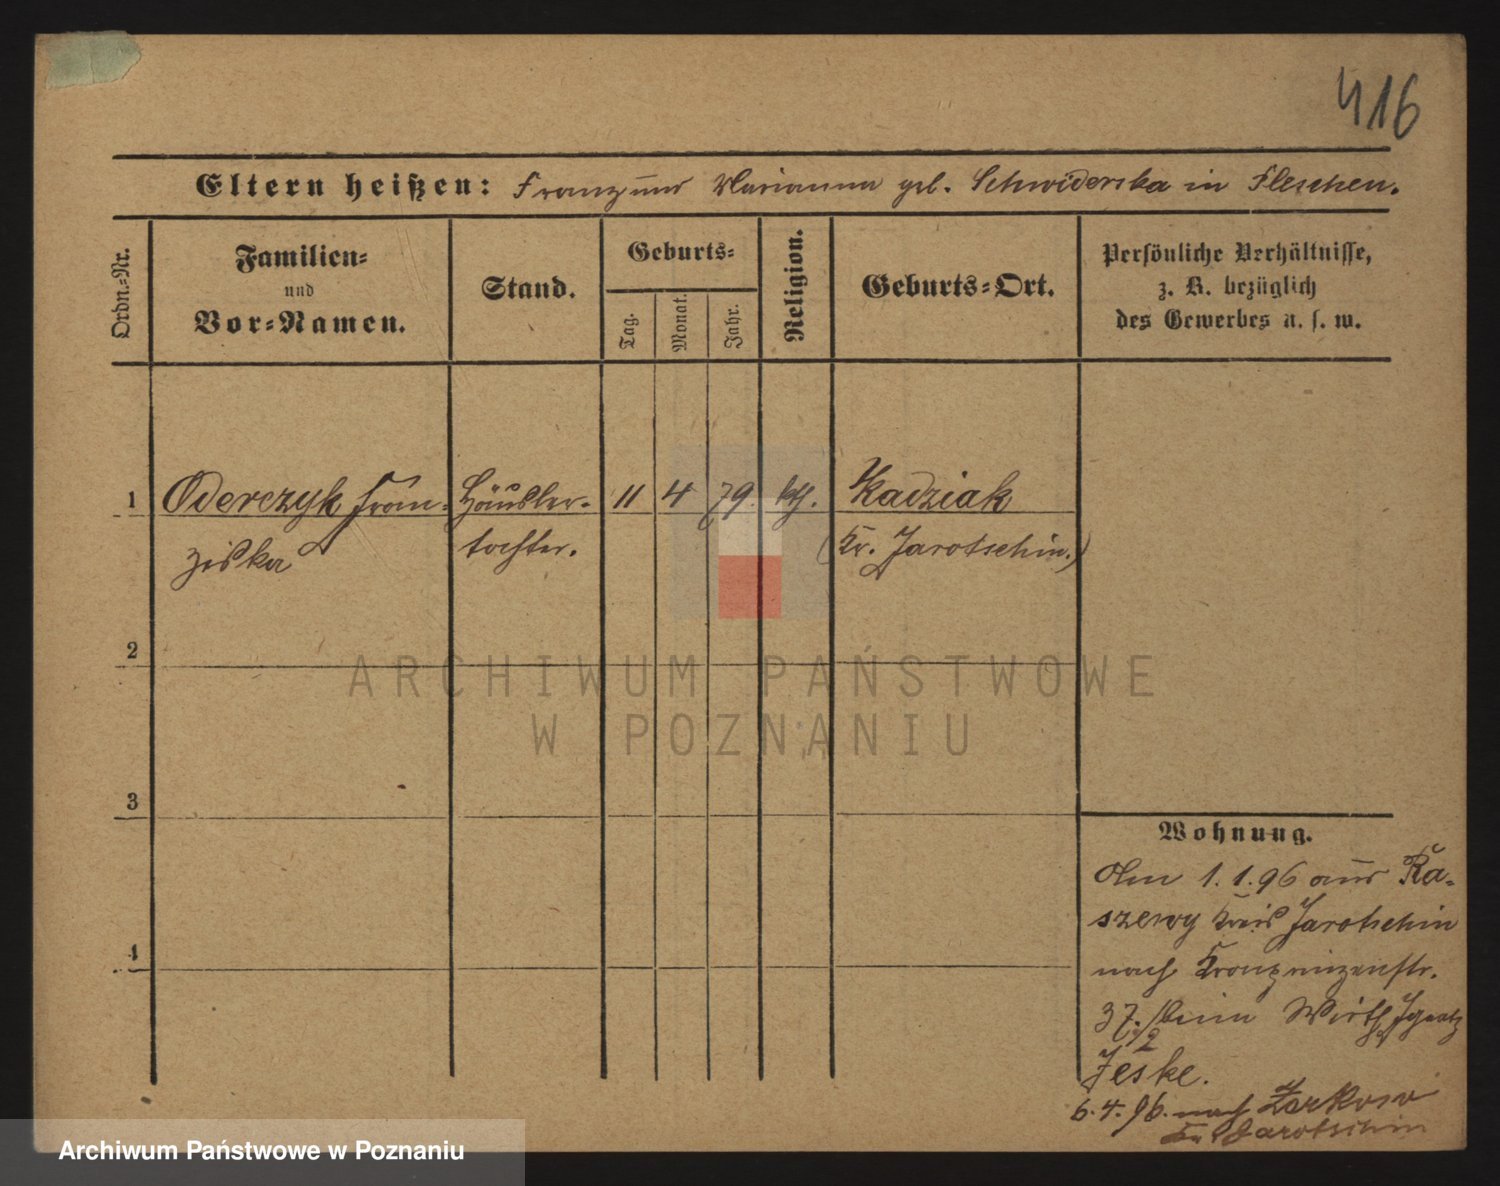 416
Eltern heißen: Franz und Marianna geb. Schwiderska in Pleschen.
Ordn.-Nr.
Familien-
und
Vor-Namen.
Stand.
Geburts-
Tag.
Monat.
Jahr.
Religion.
Geburts-Ort.
Persönliche Verhältnisse,
z. B. bezüglich
des Gewerbes u. s. w.
1 Oderczyk Fran- Häusler- 11 4 79. kth. Kadziak
ziska tochter. (Kr. Jarotschin.)
2
3
4
ARCHIWUM PAŃSTWOWE
W POZNANIU
Wohnung.
Am 1.1.96 aus Ra-
szewy Kreis Jarotschin
nach Kronprinzenstr.
37. beim Wirth Ignatz
Jeske.
6.4.96. nach
Kr Jarotschin
Archiwum Państwowe w Poznaniu